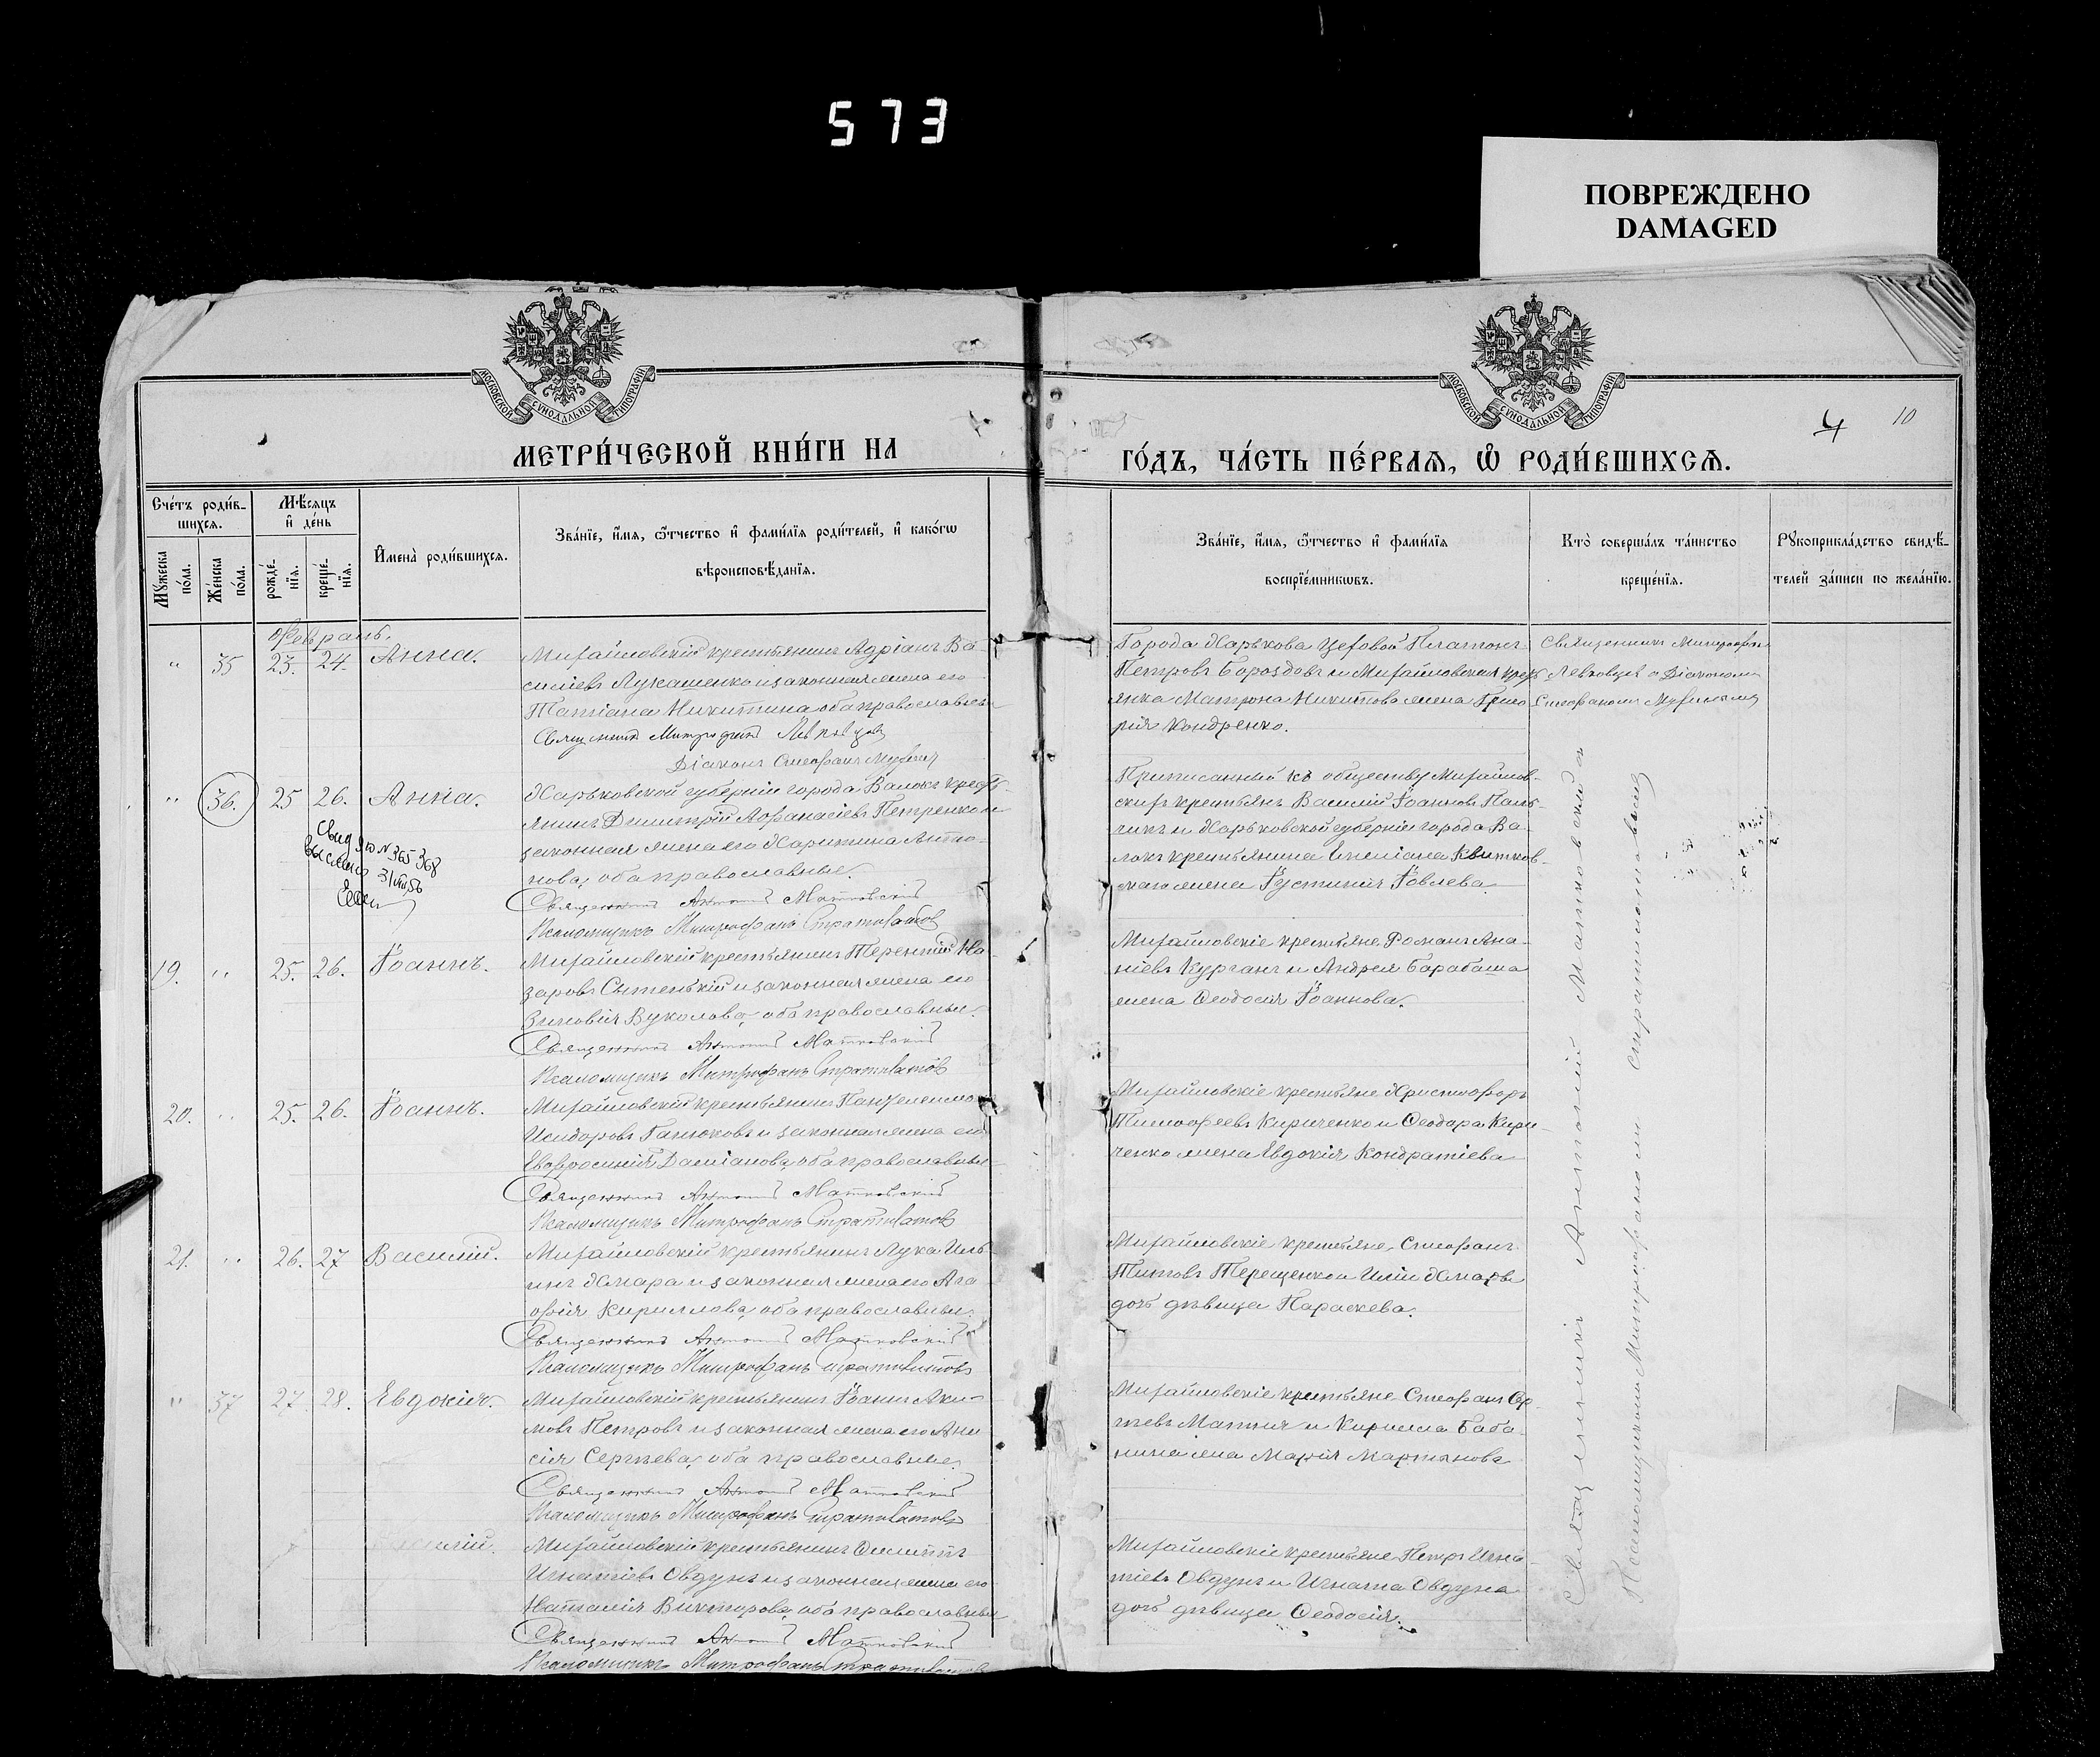 573
ПОВРЕЖДЕНО
DAMAGED
МОСКОВСКОЙ СѴНОДАЛЬНОЙ ТИПОГРАФІИ
МОСКОВСКОЙ СѴНОДАЛЬНОЙ ТИПОГРАФІИ
4 10
МЕТРИ́ЧЕСКОЙ КНИ́ГИ НА
ГО́ДЪ, ЧА́СТЬ ПЕ́РВАЯ, Ѽ РОДИ́ВШИХСЯ.
Сче́тъ роди́в-
шихся.
Мꙋ́жеска по́ла.
Же́нска по́ла.
Мѣ́сяцъ
и҆ де́нь
рожде́-
нїя.
креще́-
нїя.
И҆мена̀ роди́вшихся.
Зва́нїе, и҆́мя, ѻ҆́тчество и҆ фами́лїя роди́телей, и҆ како́гѡ
вѣроисповѣ́данїя.
Зва́нїе, и҆́мя, ѻ҆́тчество и҆ фами́лїя
воспрїе́мникѡвъ.
Кто̀ соверша́лъ та́инство
креще́нїя.
Рꙋкоприкла́дство свидѣ́-
телей за́писи по жела́нїю.
Февраль.
" 35 23. 24. Анна.
Михайловскій крестьянинъ Адріанъ Ва-
силіевъ Лукашенко и законная жена его
Татіана Никитина оба православные
Священникъ Митрофанъ Левковцевъ
Діаконъ Стефанъ
Города Харькова Цеховой Платонъ
Петровъ Бороздовъ и Михайловская крест
янка Матрона Никитова жена Григо
рія Кондренко.
Священникъ Митрофанъ
Левковцев с Діакономъ
Стефаномъ
" 36. 25 26. Анна.
31
Харьковской губерніи города Валокъ крест-
янинъ Димитрій Афанасіевъ Петренко и
законная жена его Харитина Анто-
нова, оба православные.
Священникъ Антоній Матковскій
Псаломщикъ Митрофанъ Стратилатовъ
Приписанный къ обществу Михайлов-
скихъ крестьянъ Василій Іоанновъ Паль-
чикъ и Харьковской губерніи города Ва-
локъ крестьянина Емеліана Квитков-
скаго жена Іустинія Іовлева.
19. " 25. 26. Іоаннъ.
Михайловскій крестьянинъ Терентій На-
заровъ Сытенькій и законная жена его
Зиновія Вуколова, оба православные.
Священникъ Антоній Матковскій
Псаломщикъ Митрофанъ Стратилатовъ
Михайловскіе крестьяне Романъ Ана-
ніевъ Курганъ и Андрея Барабаша
жена Феодосія Іоаннова.
20. " 25. 26. Іоаннъ.
Михайловскій крестьянинъ Пантелеимонъ
Исидоровъ Ганюковъ и законная жена его
Евфросинія Даміанова, оба православные
Священникъ Антоній Матковскій
Псаломщикъ Митрофанъ Стратилатовъ
Михайловскіе крестьяне Христофоръ
Тимофеевъ Кириченко и Феодора Кири-
ченко жена Евдокія Кондратіева
21. " 26. 27 Василій.
Михайловскій крестьянинъ Лука Иль-
инъ Хмара и законная жена его Ага
фія Кириллова, оба православные.
Священникъ Антоній Матковскій
Псаломщикъ Митрофанъ Стратилатовъ
Михайловскіе крестьяне, Стефанъ
Титовъ Терещенко и Иліи Хмары
дочь дѣвица Параскева.
" 37 27. 28. Евдокія.
Михайловскій крестьянинъ Іоаннъ Аки-
мовъ Петровъ и законная жена его Ани
сія Сергѣева, оба православные.
Священникъ Антоній Матковскій
Псаломщикъ Митрофанъ Стратилатовъ
Михайловскіе крестьяне Стефанъ Сер-
гѣевъ и Кирилла Баба-
нина жена Марія Мартинова
Михайловскій крестьянинъ Филиппъ
Игнатіевъ Овдунъ и законная жена его
Наталія Викторова, оба православные
Священникъ Антоній Матковскій
Псаломщикъ Митрофанъ Стратилатовъ
Михайловскіе крестьяне Петръ Игна-
тіевъ Овдунъ и Игната Овдуна
дочь дѣвица Феодосія.
Священникъ Антоній Матковскій съ
Псаломщикомъ Митрофаномъ Стратилатовымъ